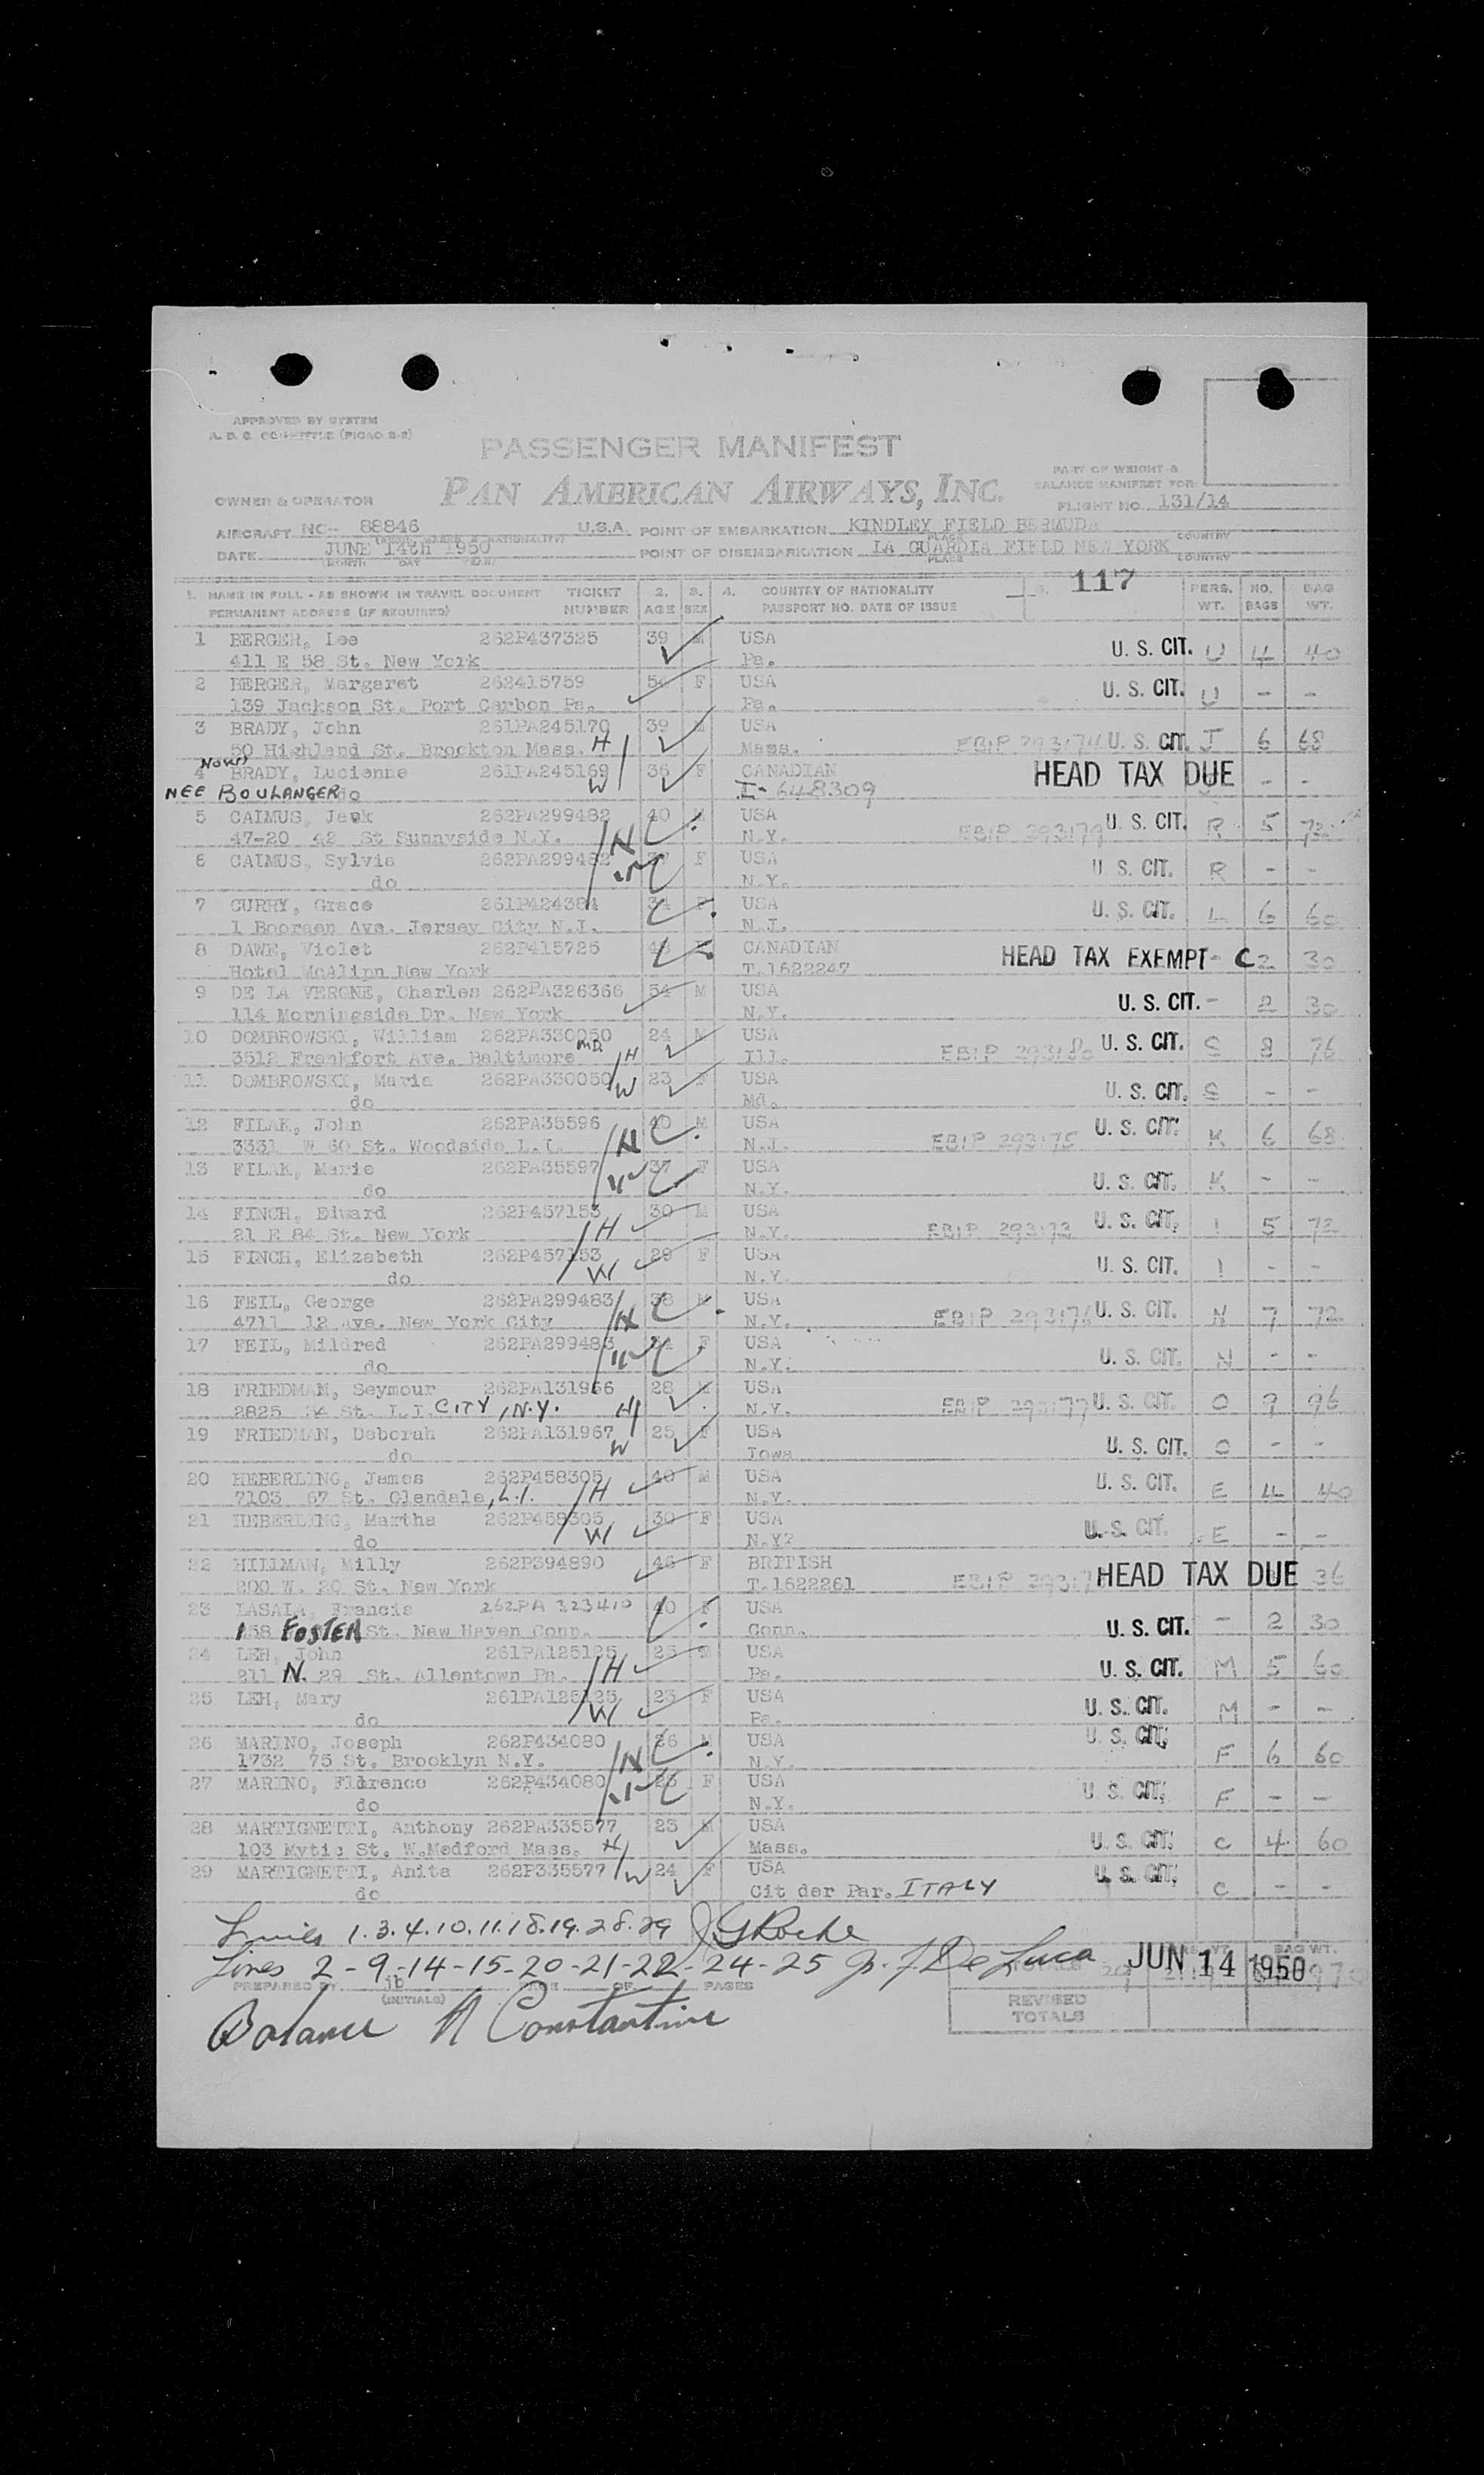 APPROVED BY SYSTEM
PASSENGER MANIFEST
PART OF WEIGHT &
BALANCE MANIFEST FOR
OWNER & OPERATOR PAN AMERICAN AIRWAYS, INC. FLIGHT NO. 131/14
AIRCRAFT NC-- 88846 U.S.A. POINT OF EMBARKATION KINDLEY FIELD BERMUDA
PLACE COUNTRY
DATE JUNE 14th 1950 POINT OF DISEMBARKATION LA GUARDIA FIELD NEW YORK
MONTH DAY YEAR PLACE COUNTRY
117
1. NAME IN FULL - AS SHOWN IN TRAVEL DOCUMENT TICKET 2. 3. 4. COUNTRY OF NATIONALITY PERS. NO. BAG
PERMANENT ADDRESS (IF REQUIRED) NUMBER AGE SEX PASSPORT NO. DATE OF ISSUE WT. BAGS WT.
1 BERGER, Lee 262P437325 39 M USA
411 E 58 St. New York Pa. U. S. CIT. U 4 40
2 BERGER, Margaret 262415759 54 F USA
139 Jackson St. Port Carbon Pa. Pa. U. S. CIT. U - -
3 BRADY, John 261PA245170 39 M USA
50 Highland St. Brockton Mass. H Mass. EBIP 293174 U. S. CIT. J 6 68
4 BRADY, Lucienne 261PA245169 36 F CANADIAN HEAD TAX DUE - -
NEE BOULANGER do W I-648309
5 CAIMUS, Jack 262PA299482 40 M USA
47-20 42 St Sunnyside N.Y. N.Y. EBIP 293179 U. S. CIT. R 5 72
6 CAIMUS, Sylvia 262PA299482 F USA
do N.Y. U. S. CIT. R - -
7 CURRY, Grace 261P424384 34 F USA
1 Booraen Ave. Jersey City N.J. N.J. U. S. CIT. L 6 60
8 DAWE, Violet 262P415725 F CANADIAN
Hotel McAlipn New York T.1622247 HEAD TAX EXEMPT - C 2 30
9 DE LA VERGNE, Charles 262PA326366 54 M USA
114 Morningside Dr. New York N.Y. U. S. CIT. - 2 30
10 DOMBROWSKI, William 262PA330050 24 M USA
3512 Frankfort Ave. Baltimore MD. H Ill. EBIP 293180 U. S. CIT. S 8 76
11 DOMBROWSKI, Maria 262PA330050 W 23 F USA
do Md. U. S. CIT. S - -
12 FILAK, John 262PA35596 40 M USA
3331 W 60 St. Woodside L.I. N.J. EBIP 293175 U. S. CIT. K 6 68
13 FILAK, Marie 262PA35597 37 F USA
do N.Y. U. S. CIT. K - -
14 FINCH, Edward 262P457153 30 M USA
21 E 84 St. New York H N.Y. EBIP 293172 U. S. CIT. I 5 72
15 FINCH, Elizabeth 262P457153 29 F USA
do W N.Y. U. S. CIT. I - -
16 FEIL, George 262PA299483 38 M USA
4711 12 Ave. New York City N.Y. EBIP 293176 U. S. CIT. N 7 72
17 FEIL, Mildred 262PA299483 34 F USA
do N.Y. U. S. CIT. N - -
18 FRIEDMAN, Seymour 262PA131966 28 M USA
2825 34 St. L.I. CITY, N.Y. H N.Y. EBIP 293177 U. S. CIT. O 9 96
19 FRIEDMAN, Deborah 262PA131967 25 F USA
do W Iowa U. S. CIT. O - -
20 HEBERLING, James 262P458305 40 M USA
7103 67 St. Glendale, L.I. H N.Y. U. S. CIT. E 4 40
21 HEBERLING, Martha 262P458305 30 F USA
do W N.Y? U. S. CIT. E - -
22 HILLMAN, Milly 262P394890 46 F BRITISH
200 W. 20 St. New York T.1622261 EBIP HEAD TAX DUE 36
23 LASALA, Francis 262PA 323410 40 F USA
158 FOSTER St. New Haven Conn. Conn. U. S. CIT. - 2 30
24 LEH, John 261PA125125 25 M USA
211 N. 29 St. Allentown Pa. H Pa. U. S. CIT. M 5 60
25 LEH, Mary 261PA125125 23 F USA
do W Pa. U. S. CIT. M - -
26 MARINO, Joseph 262P434080 26 M USA U. S. CIT.
1732 75 St. Brooklyn N.Y. N.Y. F 6 60
27 MARINO, Florence 262P434080 23 F USA
do N.Y. U. S. CIT. F - -
28 MARTIGNETTI, Anthony 262PA335577 23 M USA
103 Mytic St. W.Medford Mass. H Mass. U. S. CIT. C 4 60
29 MARTIGNETTI, Anita 262P335577 W 24 F USA U. S. CIT.
do Cit der Par. ITALY C - -
Lines 1.3.4.10.11.18.19.28.29 JGRoche
Lines 2-9-14-15-20-21-22-24-25 De Luca JUN 14 1950
PREPARED BY jb PAGE OF PAGES BAG WT.
(INITIALS)
REVISED
TOTALS
Balance A Constantine